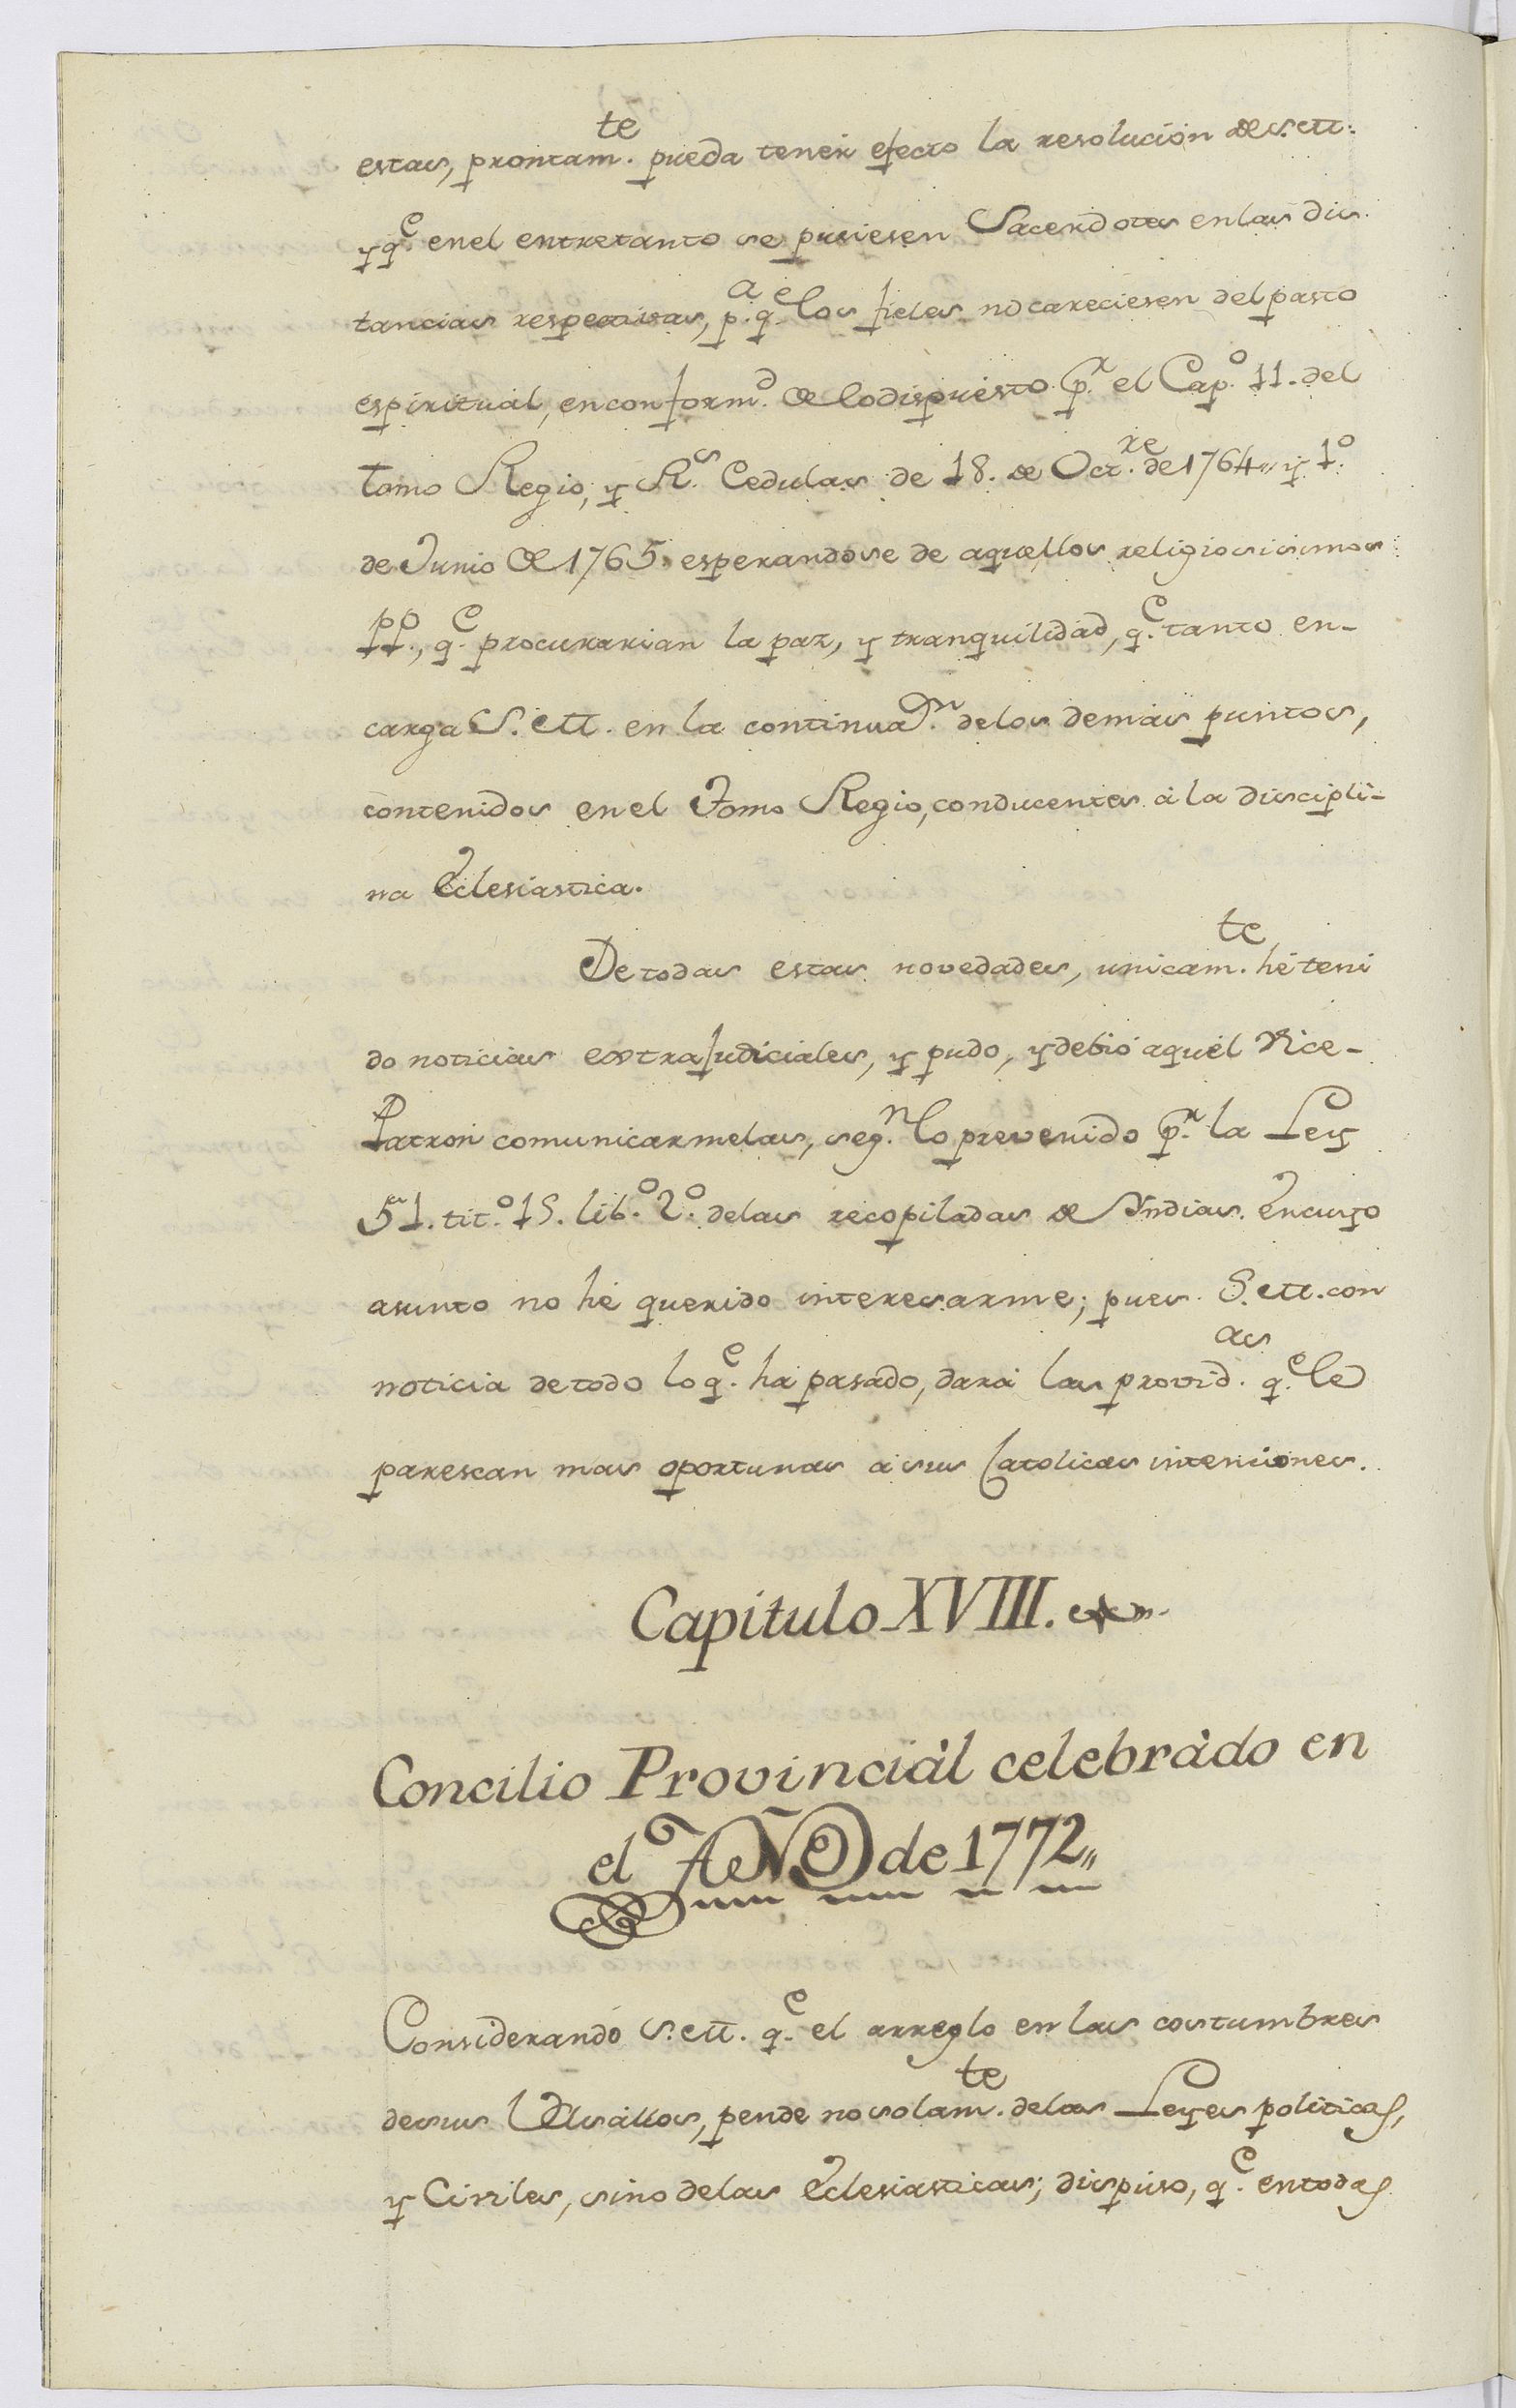 estas, prontam.te pueda tener efecto la resolución de S. M.
y q.e en el entretanto se pusiesen Sacerdotes en las dis
tancias respectivas, p.a q.e los fieles no careciesen del pasto
espiritual, en conform.d de lo dispuesto p.r el Cap.o 11. del
tomo Regio, y R.s Cedulas de 18. de Oct.re de 1764 y 1.o
de Junio de 1765 esperandose de aquellos religiosisimos
PP., q.e procurarian la paz, y tranquilidad, q.e tanto en-
carga S. M. en la continua.on de los demás puntos,
contenidos en el Tomo Regio, conducentes á la discipli-
na Eclesiastica.
De todas estas novedades, unicam.te hé teni
do noticias extrajudiciales, y pudo, y debió aquél Vice-
Patron comunicarmelas, seg.n lo prevenido p.r la Ley
51. tit.o 15. lib.o 2.o de las recopiladas de Yndias. En cuyo
asunto no hé querido interesarme; pues S. M. con
noticia de todo lo q.e há pasado, dará las provid.as q.e le
parescan mas oportunas á sus Catolicas intenciones.
Capitulo XVIII.
Concilio Provinciál celebrádo en
el AÑO de 1772,,
Considerando S. M. q.e el arreglo en las costumbres
de sus Vasallos, pende no solam.te de las Leyes politicas,
y Civiles, sino de las Eclesiasticas; dispuso, q.e en todas